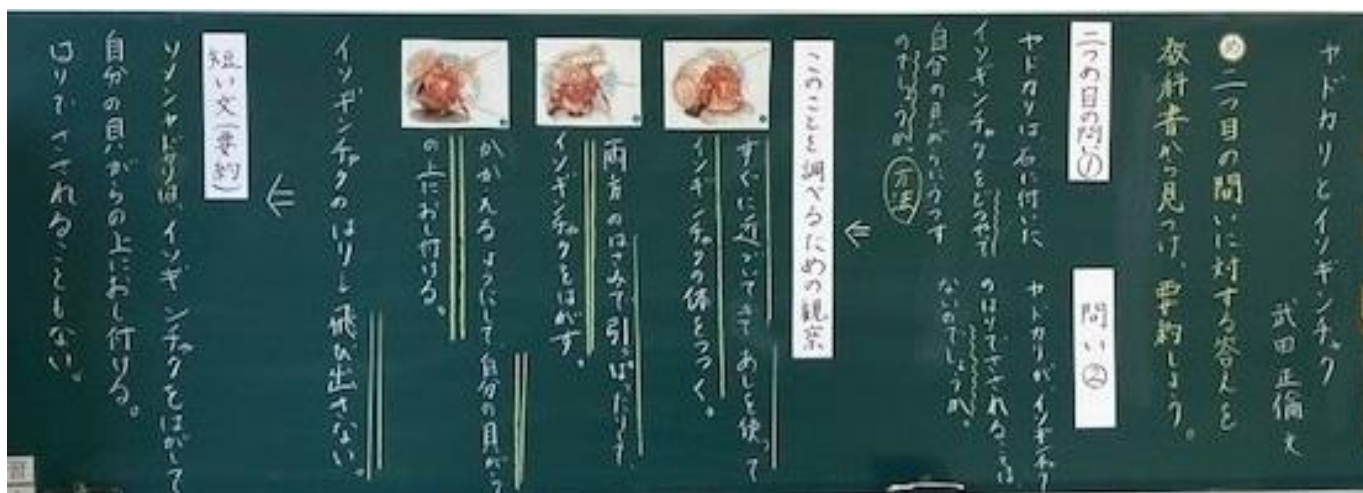 ヤドカリとイソギンチャク
武田正倫 文
め 二つ目の問いに対する答えを
教科書から見つけ、要約しよう。
二つめ目の問い①
ヤドカリは石に付いた
イソギンチャクをどうやって
自分の貝がらにうつす
のでしょうか。
方法
問い②
ヤドカリが、イソギンチャク
のはりでさされることは
ないのでしょうか。
←
このことを調べるための観察
すぐに近づいてきて、あしを使って
イソギンチャクの体をつつく。
両方のはさみで引っぱったりして、
イソギンチャクをはがす。
かかえるようにして自分の貝がら
の上におし付ける。
イソギンチャクのはりは飛び出さない。
←
短い文(要約)
ソメンヤドカリは、イソギンチャクをはがして
自分の貝がらの上におし付ける。
はりでさされることもない。